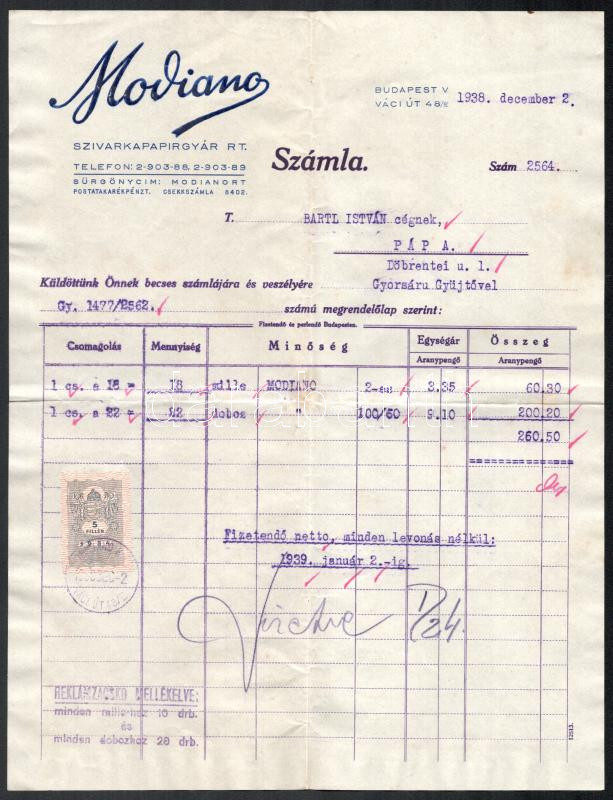 Modiano
SZIVARKAPAPIRGYÁR RT.
TELEFON: 2-903-88, 2-903-89
SÜRGÖNYCIM: MODIANORT
POSTATAKARÉKPÉNZT. CSEKKSZÁMLA 8402.
BUDAPEST V
VÁCI ÚT 48/E 1938. december 2.
Számla.
Szám 2564.
T. BARTL ISTVÁN cégnek,
PÁPA.
Döbrentei u. 1.
Küldöttünk Önnek becses számlájára és veszélyére Gyorsáru Gyüjtővel
Gy. 1477/2562. számú megrendelőlap szerint:
Fizetendő és perlendő Budapesten.
Csomagolás Mennyiség Minőség Egységár Összeg
Aranypengő Aranypengő
1 cs. a 18 = 18 mille MODIANO 3.35 60.30
1 cs. a 22 = 22 doboz " 100/60 9.10 200.20
260.50
5
FILLÉR
Fizetendő netto, minden levonás nélkül:
1939. január 2.-ig.
1/24.
REKLÁMZACSKÓ MELLÉKELVE:
minden milléhez 10 drb.
és
minden dobozhoz 20 drb.